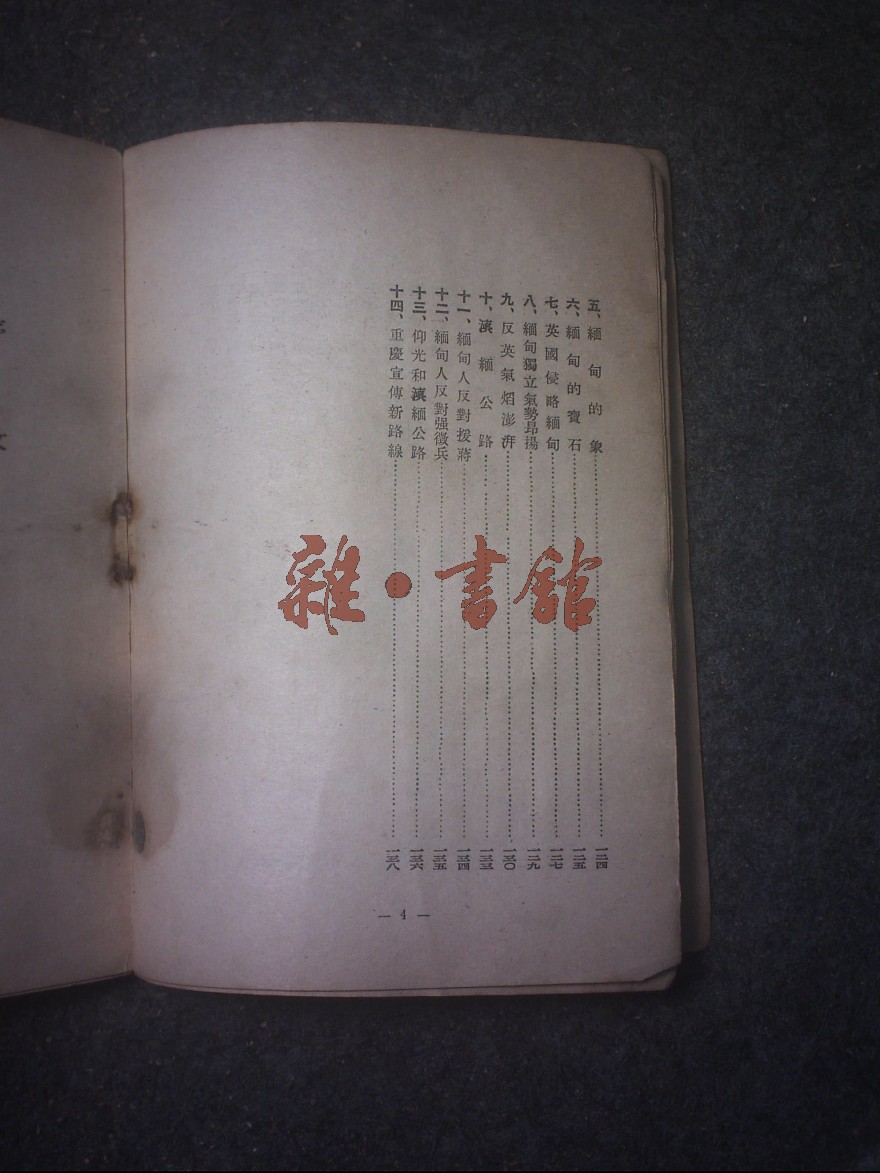 五、緬甸的象……一二四
六、緬甸的寶石……一二五
七、英國侵略緬甸……一二七
八、緬甸獨立氣勢昂揚……一二九
九、反英氣焰澎湃……一三〇
十、滇緬公路……一三三
十一、緬甸人反對援蔣……一三四
十二、緬甸人反對强徵兵……一三五
十三、仰光和滇緬公路……一三六
十四、重慶宣傳新路線……一三八
— 4 —
雜·書館